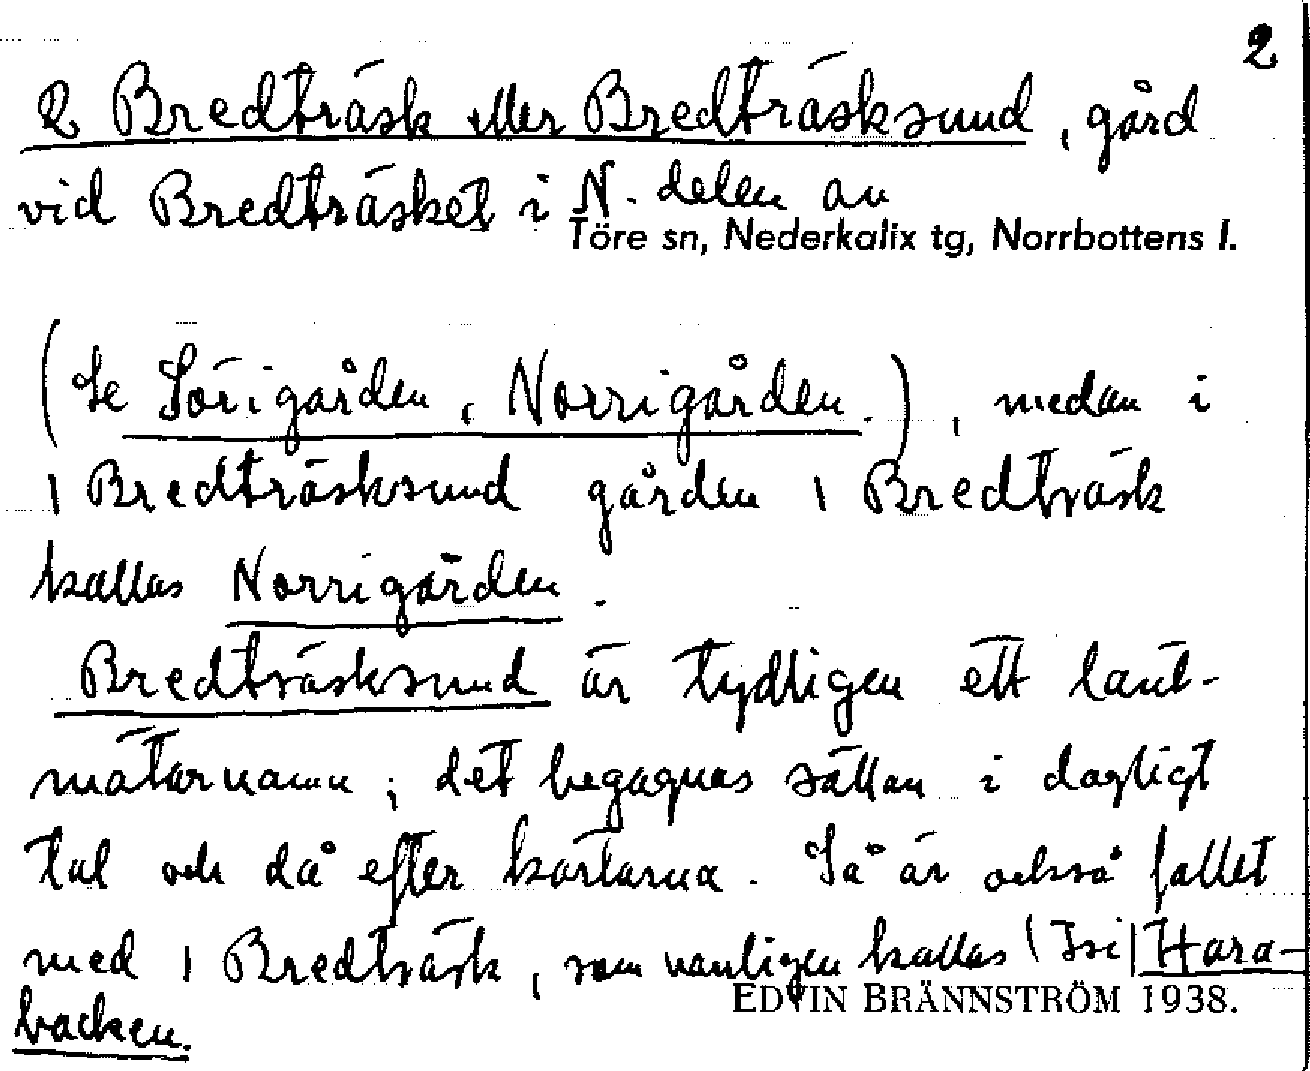 2
2 Bredträsk eller Bredträsksund, gård
vid Bredträsket i N. delen av
Töre sn, Nederkalix tg, Norrbottens l.
(Se Sörigården, Norrigården.), medan i
1 Bredträsksund gården 1 Bredträsk
kallas Norrigården.
Bredträsksund är tydligen ett lant-
mätarnamn; det begagnas sällan i dagligt
tal och då efter kartorna. Så är också fallet
med 1 Bredträsk, som vanligen kallas (Isi) Hara-
backen.
EDVIN BRÄNNSTRÖM 1938.